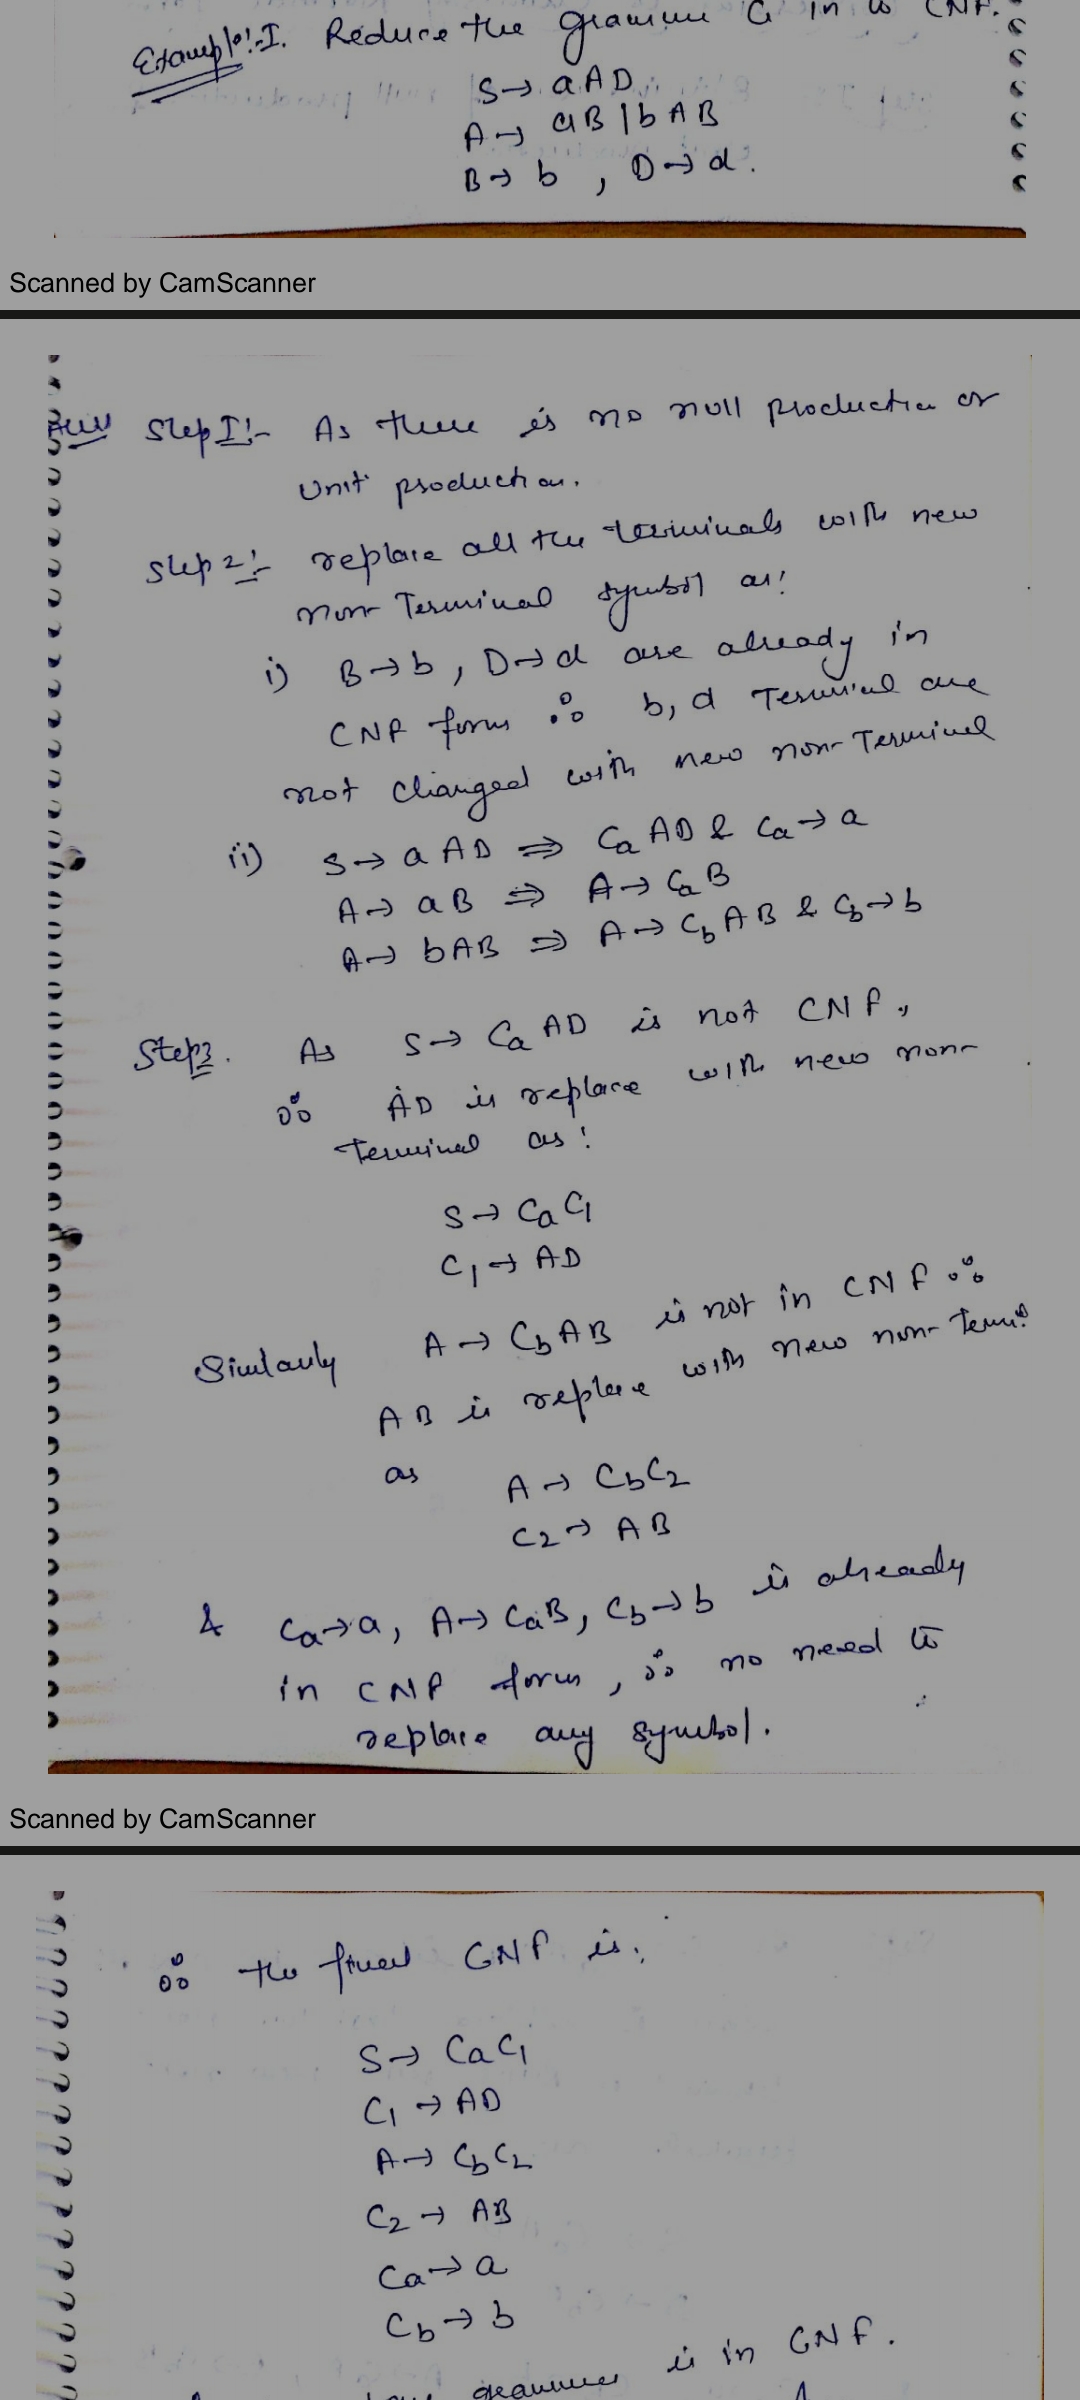 Example:-I. Reduce the grammar G in to CNF.
S→ aAD
A→ aB | bAB
B→ b , D→d.
Scanned by CamScanner
Step I:- As there is no null production or
unit production.
Step 2:- replace all the terminals with new
non-Terminal symbol as:
i) B→b, D→d are already in
CNF form ∴ b, d Terminal are
not changed with new non-Terminal
ii) S→ aAD ⇒ CaAD & Ca→a
A→ aB ⇒ A→ CaB
A→ bAB ⇒ A→ CbAB & Cb→b
Step3. As S→ CaAD is not CNF,
∴ AD is replace with new non-
Terminal as:
S→ CaC1
C1→ AD
Similarly A→ CbAB is not in CNF ∴
AB is replace with new non-Term.
as A→ CbC2
C2→ AB
& Ca→a, A→ CaB, Cb→b is already
in CNF form, ∴ no need to
replace any symbol.
Scanned by CamScanner
∴ the final GNF is.
S→ CaC1
C1→ AD
A→ CbC2
C2→ AB
Ca→a
Cb→b
grammar is in GNF.